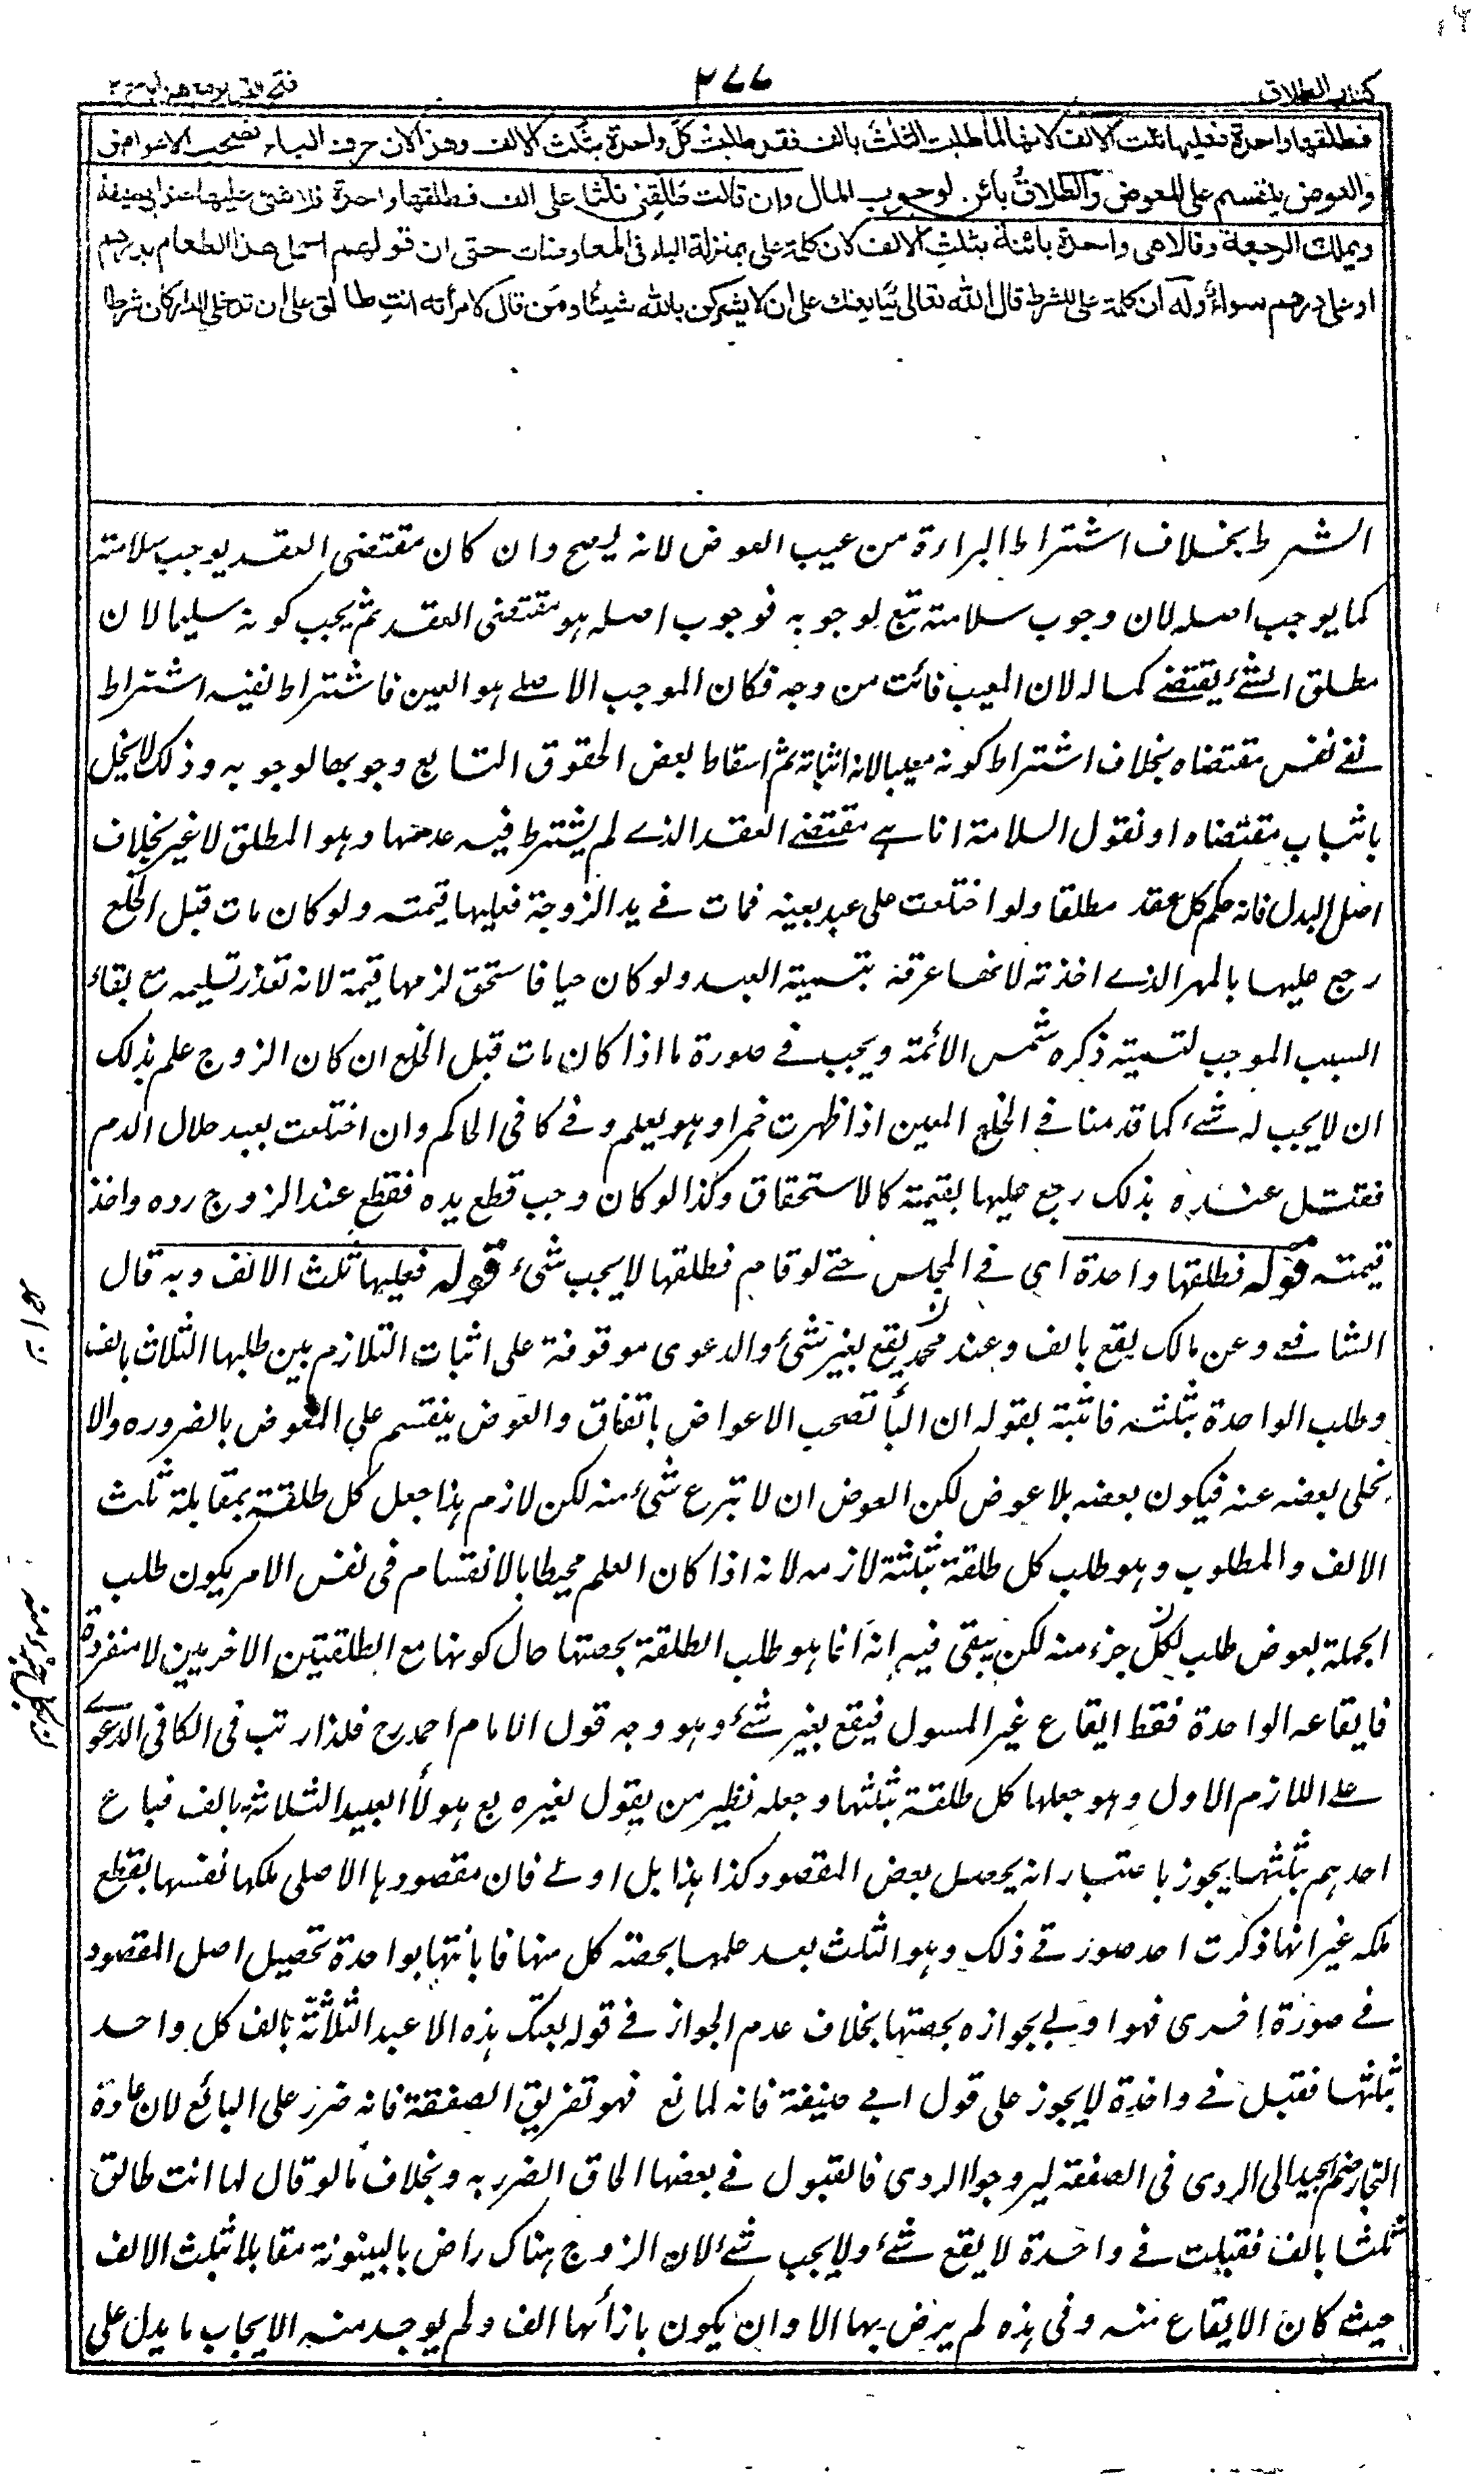 كتاب الطلاق
٢٧٧
فطلقها واحدة فعليها ثلث الالف لانها لما طلبت الثلث بالف فقد طلبت كل واحدة بثلث الالف وهذا لان حرف الباء تصحب الاعواض
والعوض ينقسم على المعوض والطلاق بائن لوجوب المال وان قالت طلقنى ثلثا على الف فطلقها واحدة فلا شئ عليها عند ابي حنيفة
ويملك الرجعة وقالا هى واحدة بائنة بثلث الالف لان كلمة على بمنزلة الباء فى المعاوضات حتى ان قولهم احمل هذا الطعام بدرهم
او على درهم سواء وله ان كلمة على للشرط قال الله تعالى يبايعنك على ان لا يشركن بالله شيئا ومن قال لامرأته انت طالق على ان تدخلى الدار كان شرطا
الشرط بخلاف اشتراط البراءة من عيب العوض لانه يصح وان كان مقتضى العقد يوجب سلامته
كما يوجب اصله لان وجوب سلامته تبع لوجوبه فوجوب اصله هو مقتضى العقد ثم يجب كونه سليما لان
مطلق الشئ يقتضے كماله لان المعيب فائت من وجه فكان الموجب الاصلے هو العين فاشتراط نفيه اشتراط
نفے نفس مقتضاه بخلاف اشتراط كونه معيبا لانه اثباته ثم اسقاط بعض الحقوق التابع وجوبها لوجوبه وذلك لا يخل
باثبات مقتضاه او نقول السلامة انما هے مقتضے العقد الذے لم يشترط فيه عدمها وهو المطلق لا غير بخلاف
اصل البدل فانه حكم كل عقد مطلقا ولو اختلعت على عبد بعينه فمات فے يد الزوجة فعليها قيمته ولو كان مات قبل الخلع
رجع عليها بالمهر الذے اخذته لانها غرته بتسمية العبد ولو كان حيا فاستحق لزمها قيمة لانه تعذر تسليمه مع بقاء
السبب الموجب لتسميته ذكره شمس الائمة ويجب فے صورة ما اذا كان مات قبل الخلع ان كان الزوج علم بذلك
ان لا يجب له شئ كما قدمنا فے الخل المعين اذا ظهرت خمرا وهو يعلم وفے كافى الحاكم وان اختلعت بعبد حلال الدم
فقتل عنده بذلك رجع عليها بقيمته كالاستحقاق وكذا لو كان وجب قطع يده فقطع عند الزوج رده واخذ
قيمته قوله فطلقها واحدة اى فے المجلس حتے لو قام فطلقها لا يجب شئ قوله فعليها ثلث الالف وبه قال
الشافعے وعن مالك يقع بالف وعند محمد يقع بغير شئ والدعوى موقوفة على اثبات التلازم بين طلبها الثلاث بالف
وطلب الواحدة بثلثه فاثبته بقوله ان الباء تصحب الاعواض باتفاق والعوض ينقسم على المعوض بالضرورة والا
يخلى بعضه عنه فيكون بعضه بلا عوض لكن العوض ان لا تبرع شئ منه لكن لازم هذا جعل كل طلقة بمقابلة ثلث
الالف والمطلوب وهو طلب كل طلقة بثلثة لازمه لانه اذا كان العلم محيطا بالانقسام فى نفس الامر يكون طلب
الجملة بعوض طلب لكل جزء منه لكن يبقى فيه انه انما هو طلب الطلقة بحصتها حال كونها مع الطلقيتين الاخريين لا منفردة
فايقاعه الواحدة فقط ايقاع غير المسول فيقع بغير شئ وهو وجه قول الامام احمد رح فلذا رتب فى الكافى الدعوے
علے اللازم الاول وهو جعلها كل طلقة بثلثها وجعله نظير من يقول لغيره بع هولأ العبيد الثلاثة بالف فباع
احدهم بثلثها يجوز باعتبار انه يحصل بعض المقصود كذا هذا بل اولے فان مقصودها الاصلى ملكها نفسها بقطع
ملكه غير انها ذكرت احد صور فے ذلك وهو الثلث بعد علمها بحصة كل منها فابانتها بواحدة تحصيل اصل المقصود
فے صورة اخرى فهو اولے بجوازه بحصتها بخلاف عدم الجواز فے قوله بعتك هذه الاعبد الثلاثة بالف كل واحد
بثلثها فقبل فے واحدة لا يجوز على قول ابے حنيفة فانه لمانع فهو تفريق الصفقة فانه ضرر على البائع لان عادة
التجار ضم الجيد الى الردى فى الصفقة ليروجوا الردى فالقبول فے بعضها الحاق الضرر به وبخلاف ما لو قال لها انت طالق
ثلثا بالف فقبلت فے واحدة لا يقع شئ ولا يجب شئ لان الزوج هناك راض بالبينونة مقابلا بثلث الالف
حيث كان الايقاع منه وفى هذه لم يرض بها الا وان يكون بازائها الف ولم يوجد منه الايجاب ما يدل على